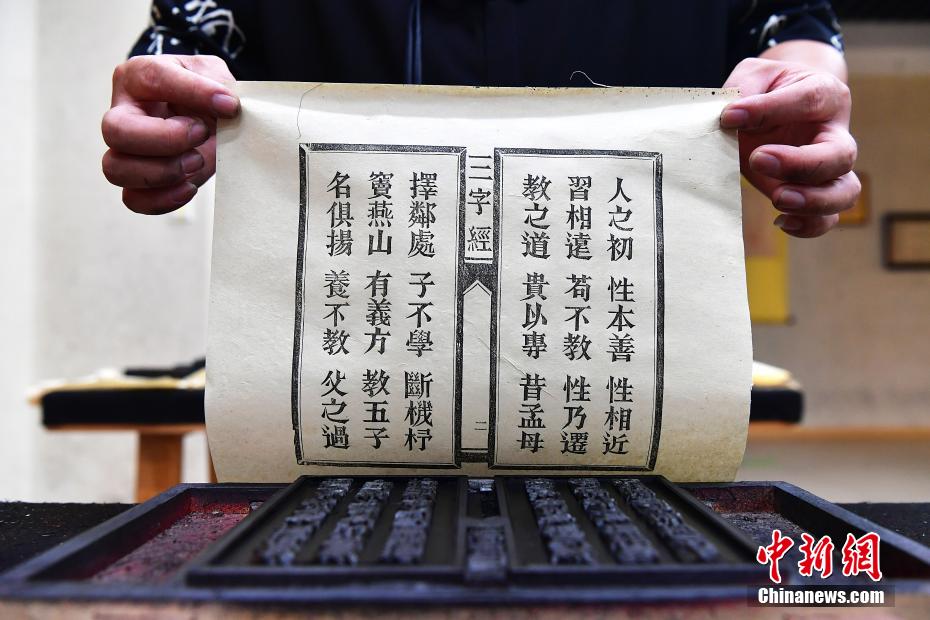 人之初 性本善 性相近
習相遠 苟不教 性乃遷
教之道 貴以專 昔孟母
三字經
二
擇鄰處 子不學 斷機杼
竇燕山 有義方 教五子
名俱揚 養不教 父之過
中新网
Chinanews.com